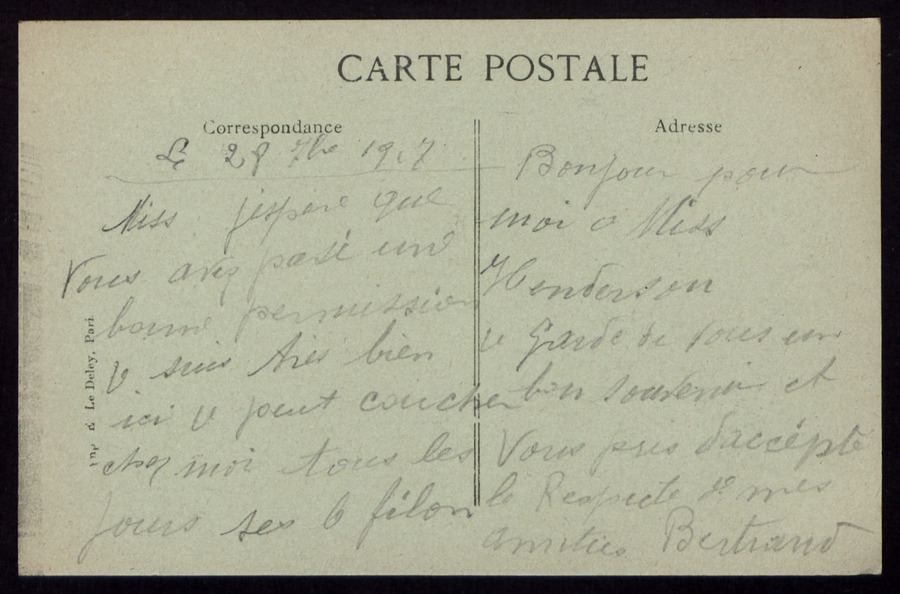 CARTE POSTALE
Correspondance
Le 28 7bre 1917
Miss jespere que
Vous avez pasé une
bonne permission
je suis tres bien
ici je peut coucher
chez moi tous les
jours ses le filon
Adresse
Bonjour pour
moi a Miss
Henderson
je Garde de Vous un
bon souvenir et
Vous pris daccépté
le Respecte de mes
amitiés Bertrand
Imp. Le Deley, Pari